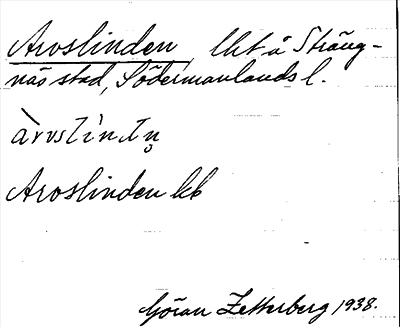 Aroslinden, lht å Sträng-
näs stad, Södermanlands l.
Aroslinden kb
Göran Zetterberg 1938.